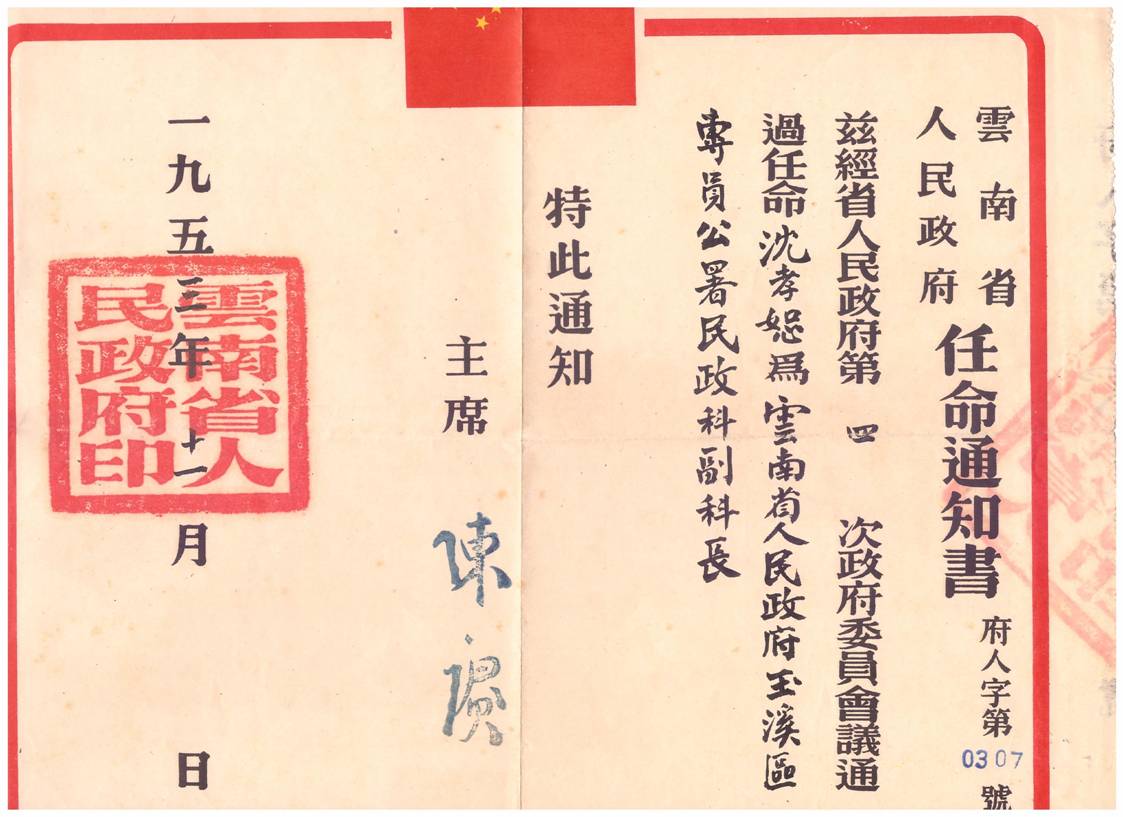 雲南省
人民政府
任命通知書
府人字第0307號
兹經省人民政府第四次政府委員會議通
過任命沈孝恕爲雲南省人民政府玉溪區
專員公署民政科副科長
特此通知
主席
陳賡
一九五三年十一月 日
雲南省人
民政府印